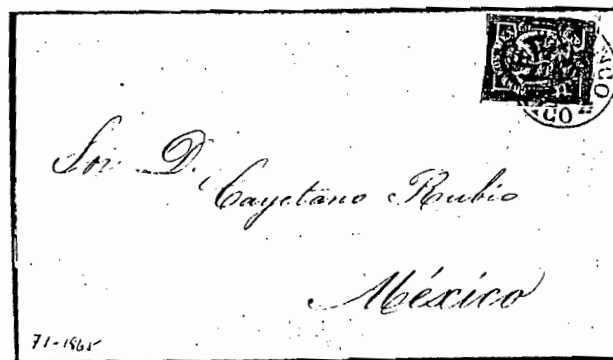 Sor. D.
Cayetano Rubio
México
71-1865